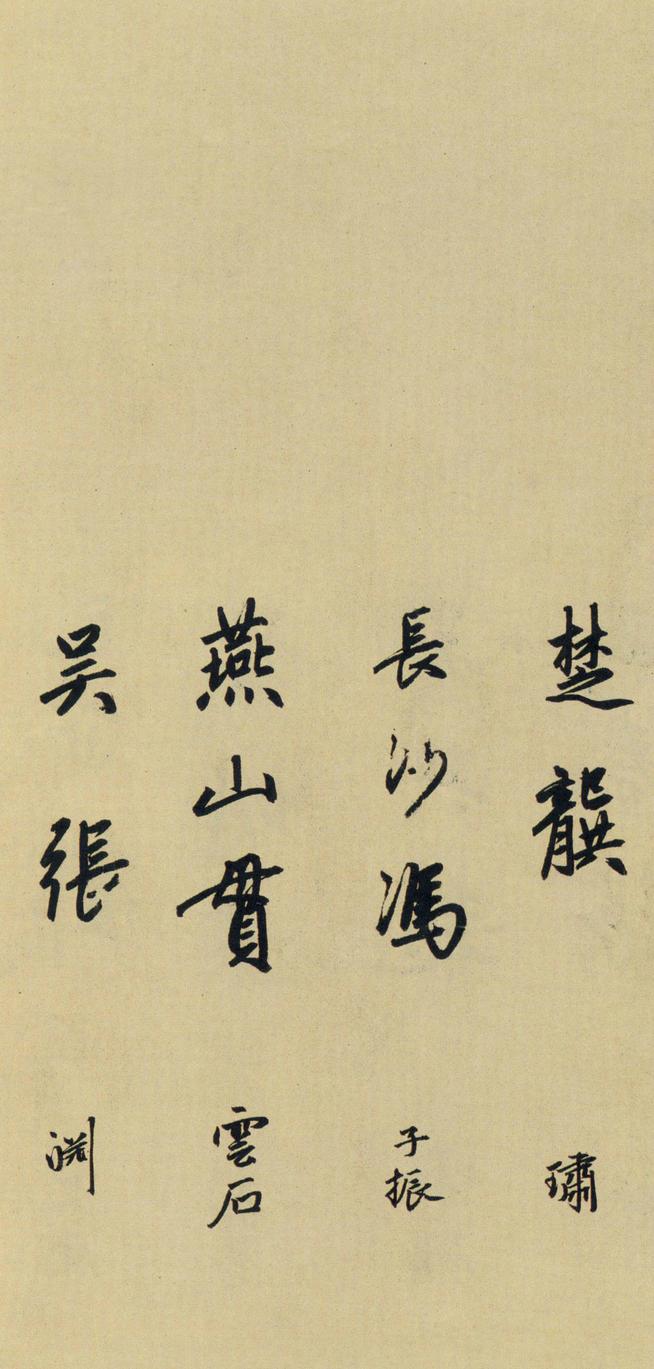 楚龔璛
長沙馮子振
燕山貫雲石
吴張渊